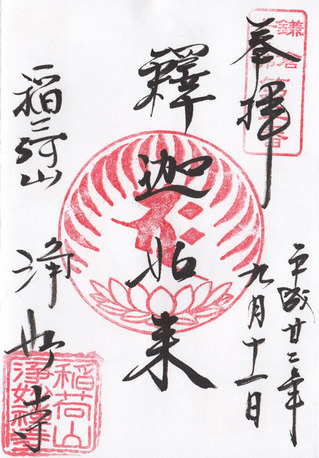 奉拝
平成廿二年
九月十一日
釋迦如来
稲荷山
浄妙寺
稲荷山
浄妙禅寺